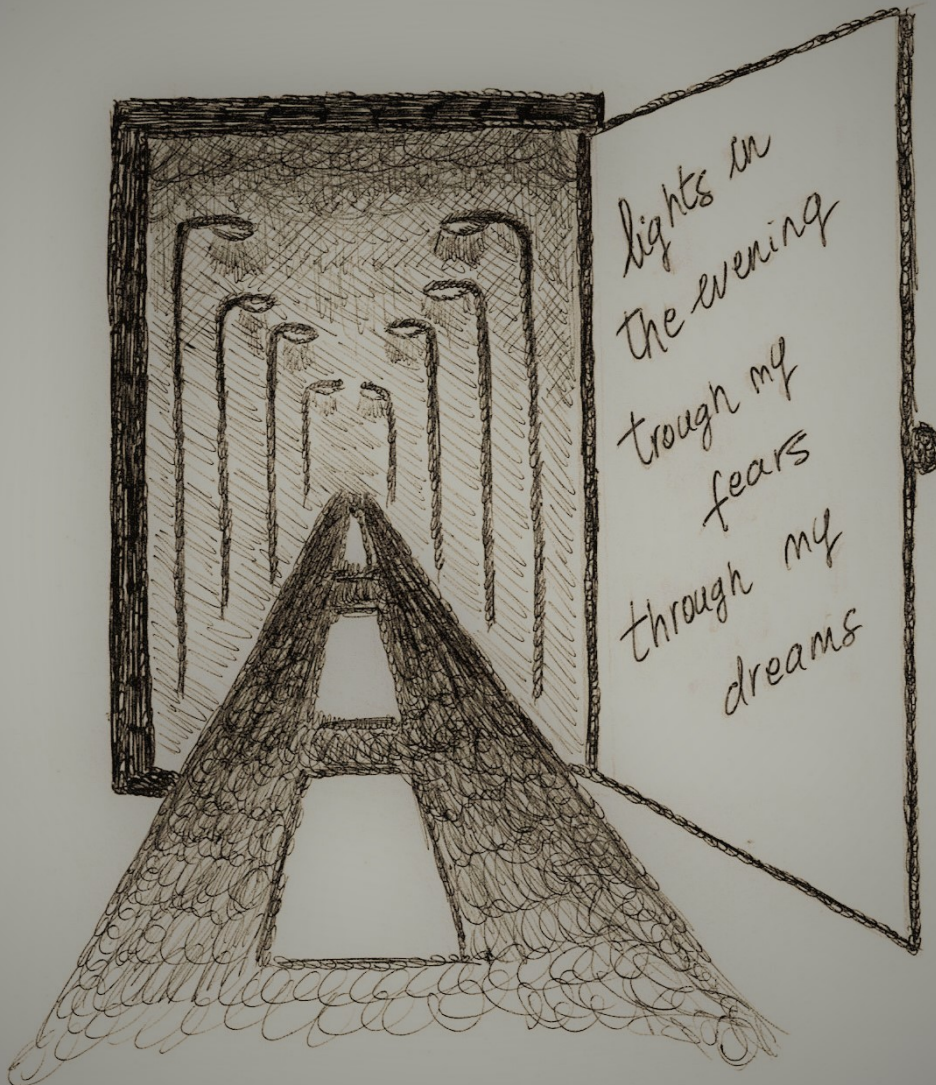 lights in
the evening
trough my
fears
through my
dreams